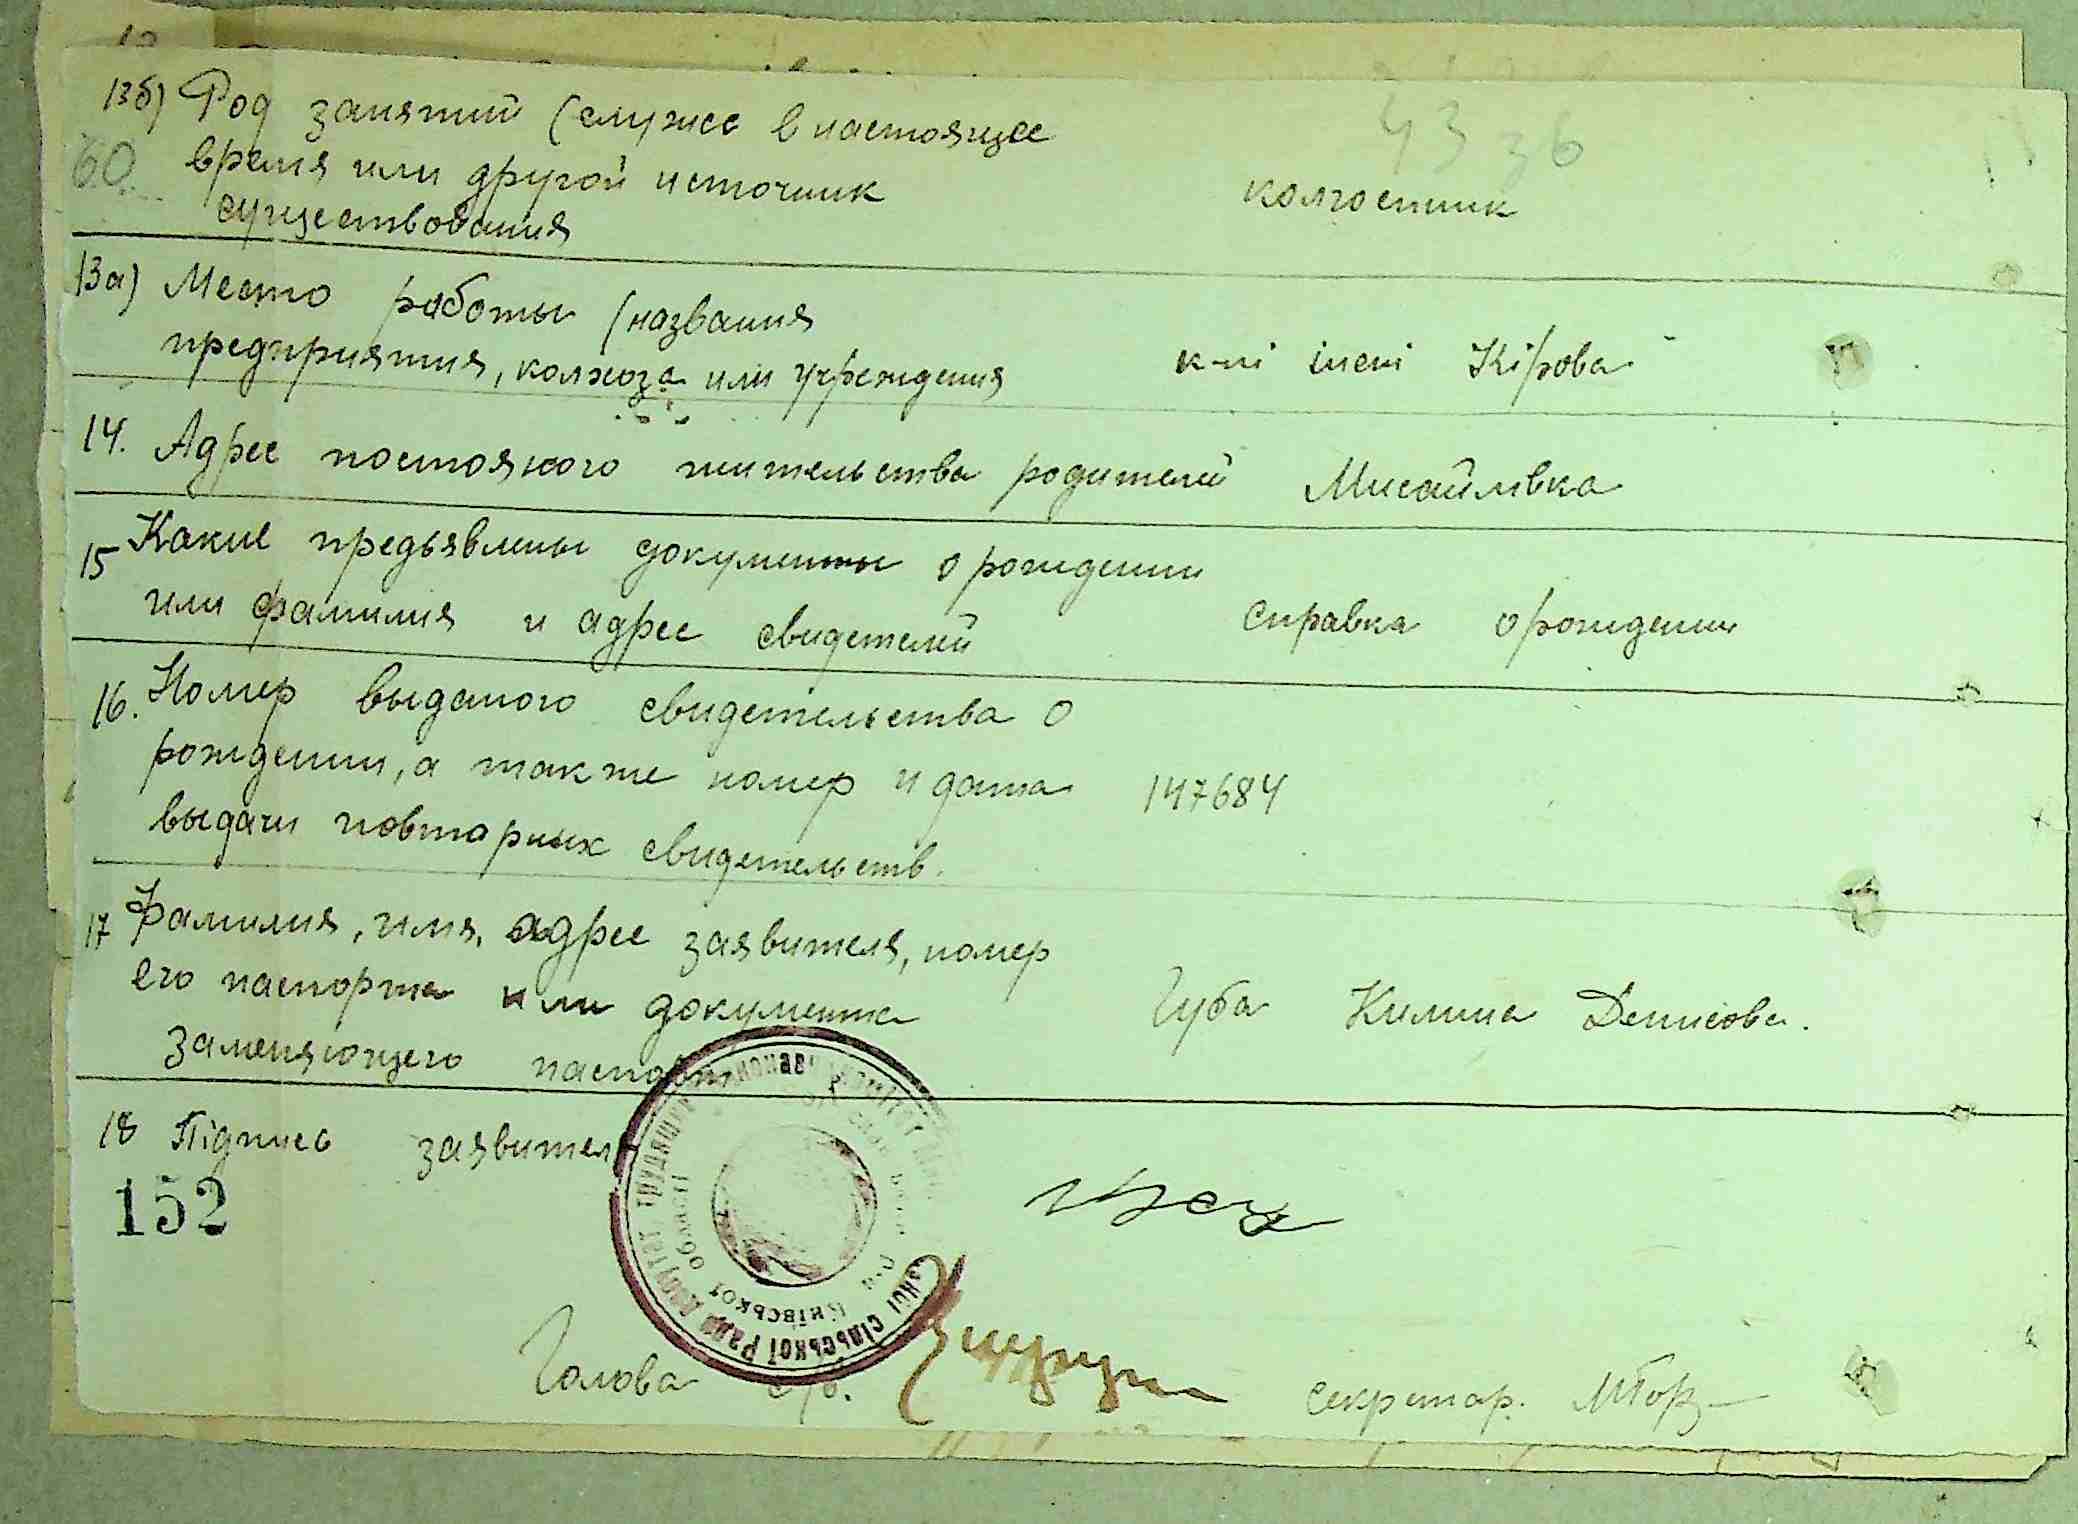 43 зв
13б) Род занятий (служсе в настоящее
60. время или другой источник
существования
колгоспник
13а) Место работы (названия
предприятия, колхоза или учреждения
к-пі імені Кірова
14. Адрес постояного жительства родителей Мисайлівка
15 Какие предьявлены документы о рождении
или фамилия и адрес свидетелей
справка о рождении
16. Номер выданого свидетельства о
рождении, а также номер и дата
147684
выдачи повторных свидетельств.
17 Фамилия, имя, адрес заявителя, номер
его паспорта или документа
Губа Килина Денисова.
заменяющего паспорт
18 Підпись заявителя
152
сільської Ради депутатів трудящих
Київської області
Голова с/р.
секретар.